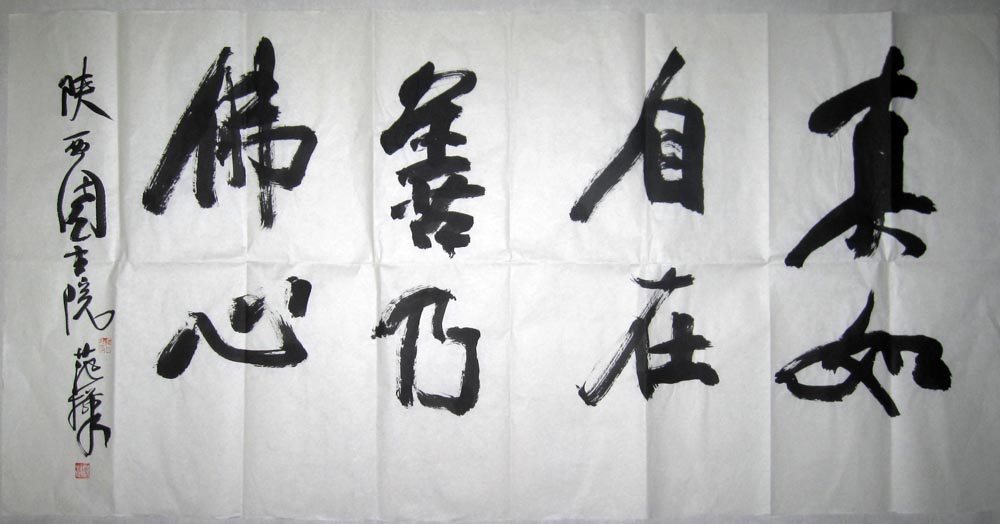 真如
自在
善乃
佛心
陕西国画院 范桦